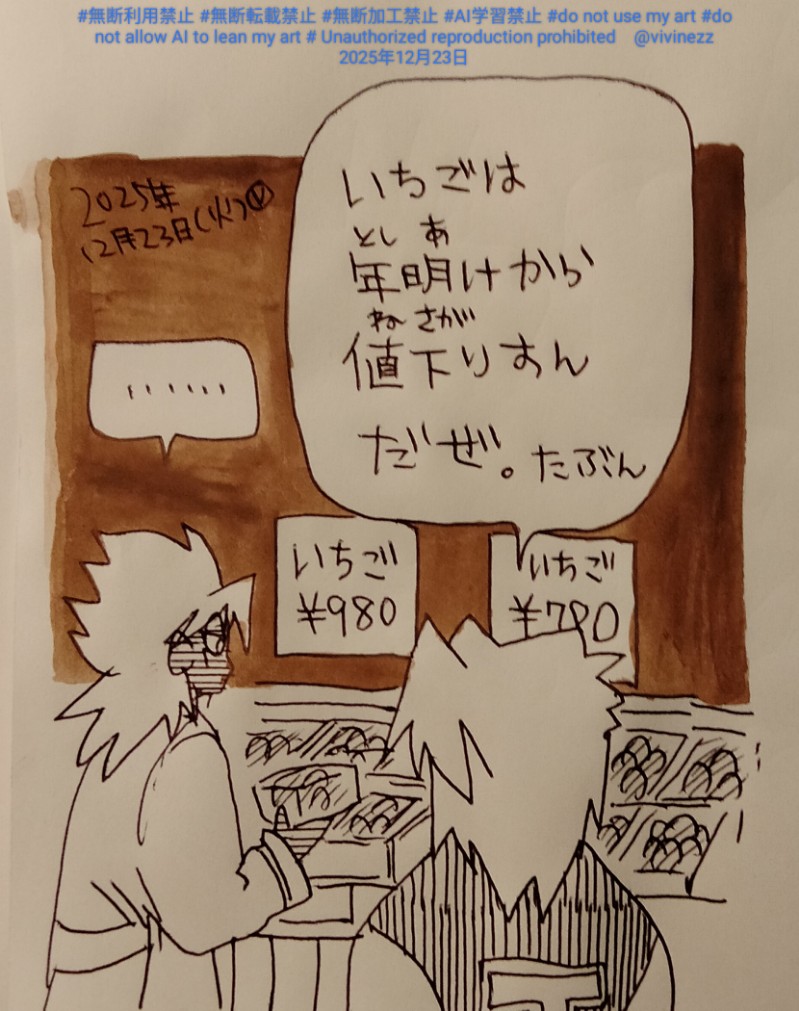 #無断利用禁止 #無断転載禁止 #無断加工禁止 #AI学習禁止 #do not use my art #do
not allow AI to lean my art # Unauthorized reproduction prohibited @vivinezz
2025年12月23日
2025年
12月23日(火)
いちごは
とし あ
年明けから
ねさが
値下りすん
だぜ。たぶん
......
いちご
¥980
いちご
¥790